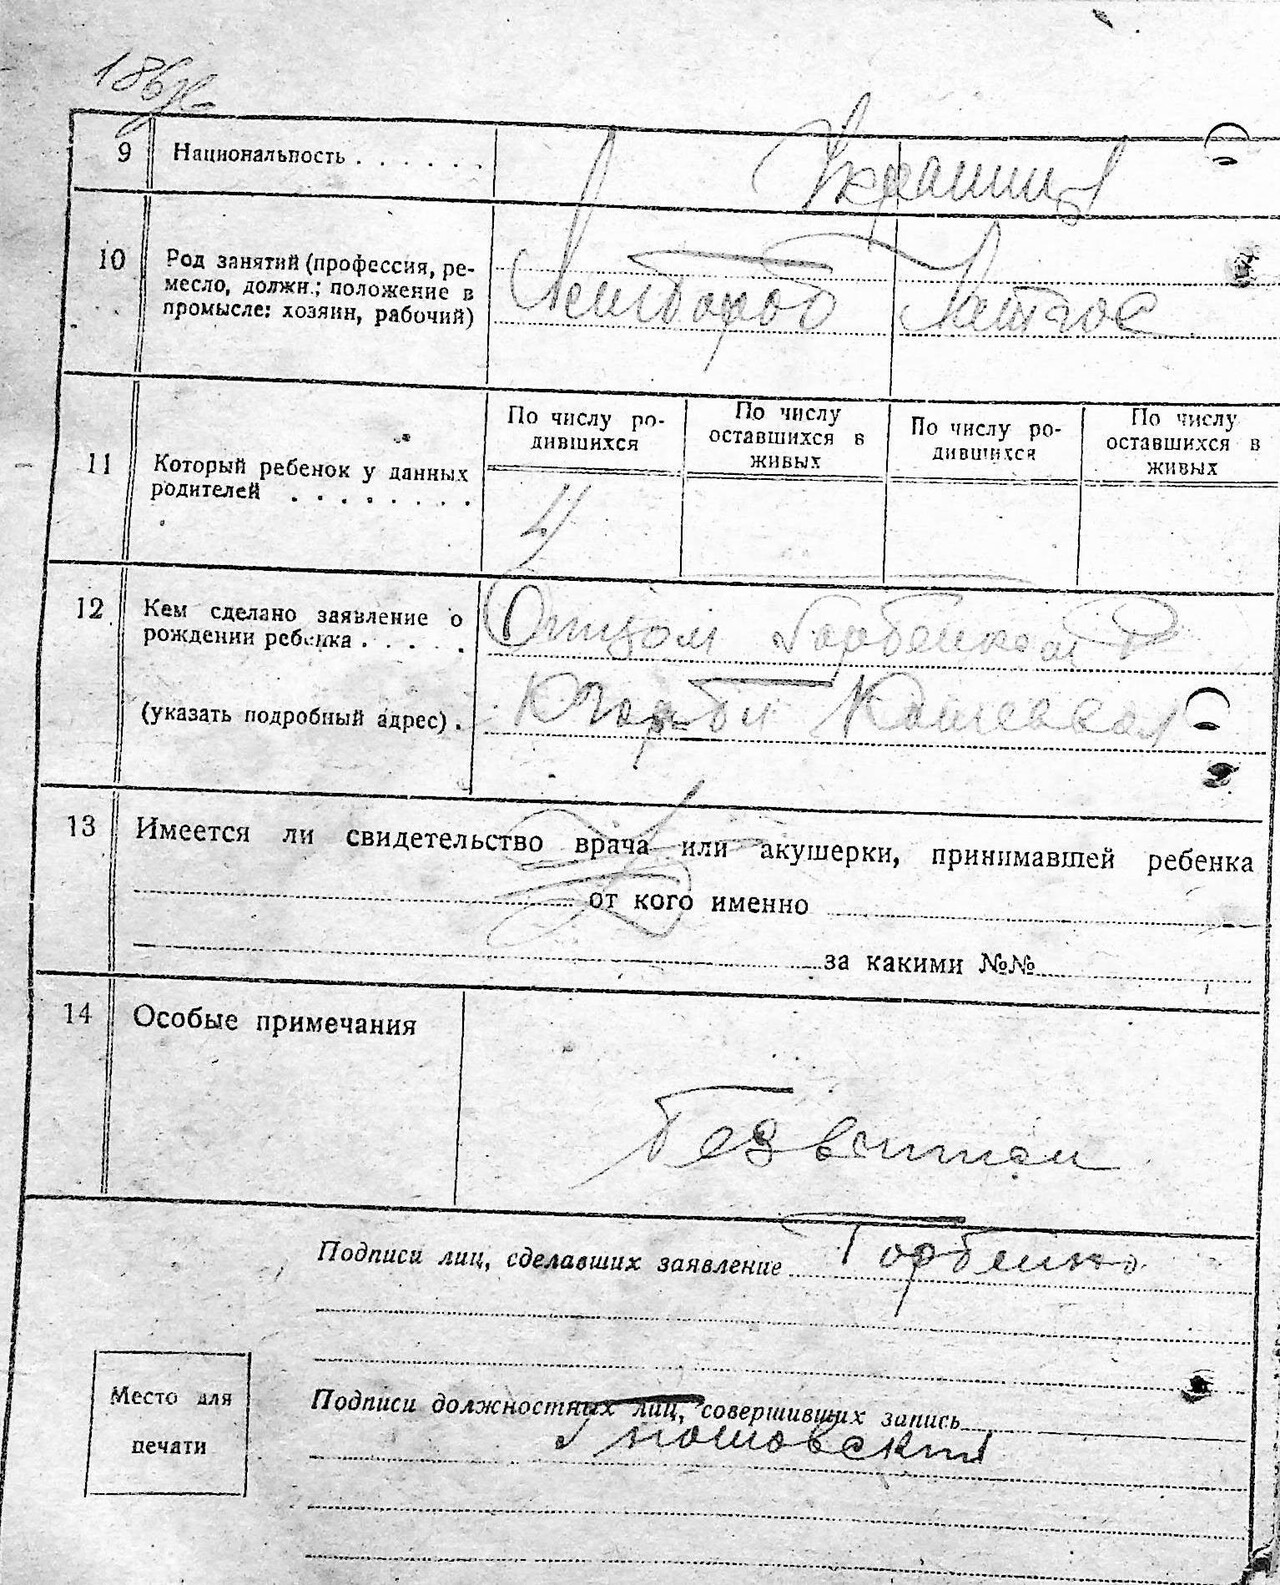 186
9 Национальность . . . . . .
Украинц
10 Род занятий (профессия, ре-
месло, должн.; положение в
промысле: хозяин, рабочий)
11 Который ребенок у данных
родителей . . . . . . . .
По числу ро-
дившихся
По числу
оставшихся в
живых
По числу ро-
дившихся
По числу
оставшихся в
живых
4
12 Кем сделано заявление о
рождении ребенка . . . . .
(указать подробный адрес) .
Отцом Горбенком
13 Имеется ли свидетельство врача или акушерки, принимавшей ребенка
от кого именно
за какими №№
14 Особые примечания
Подписи лиц, сделавших заявление Горбенко
Место для
печати
Подписи должностных лиц, совершивших запись